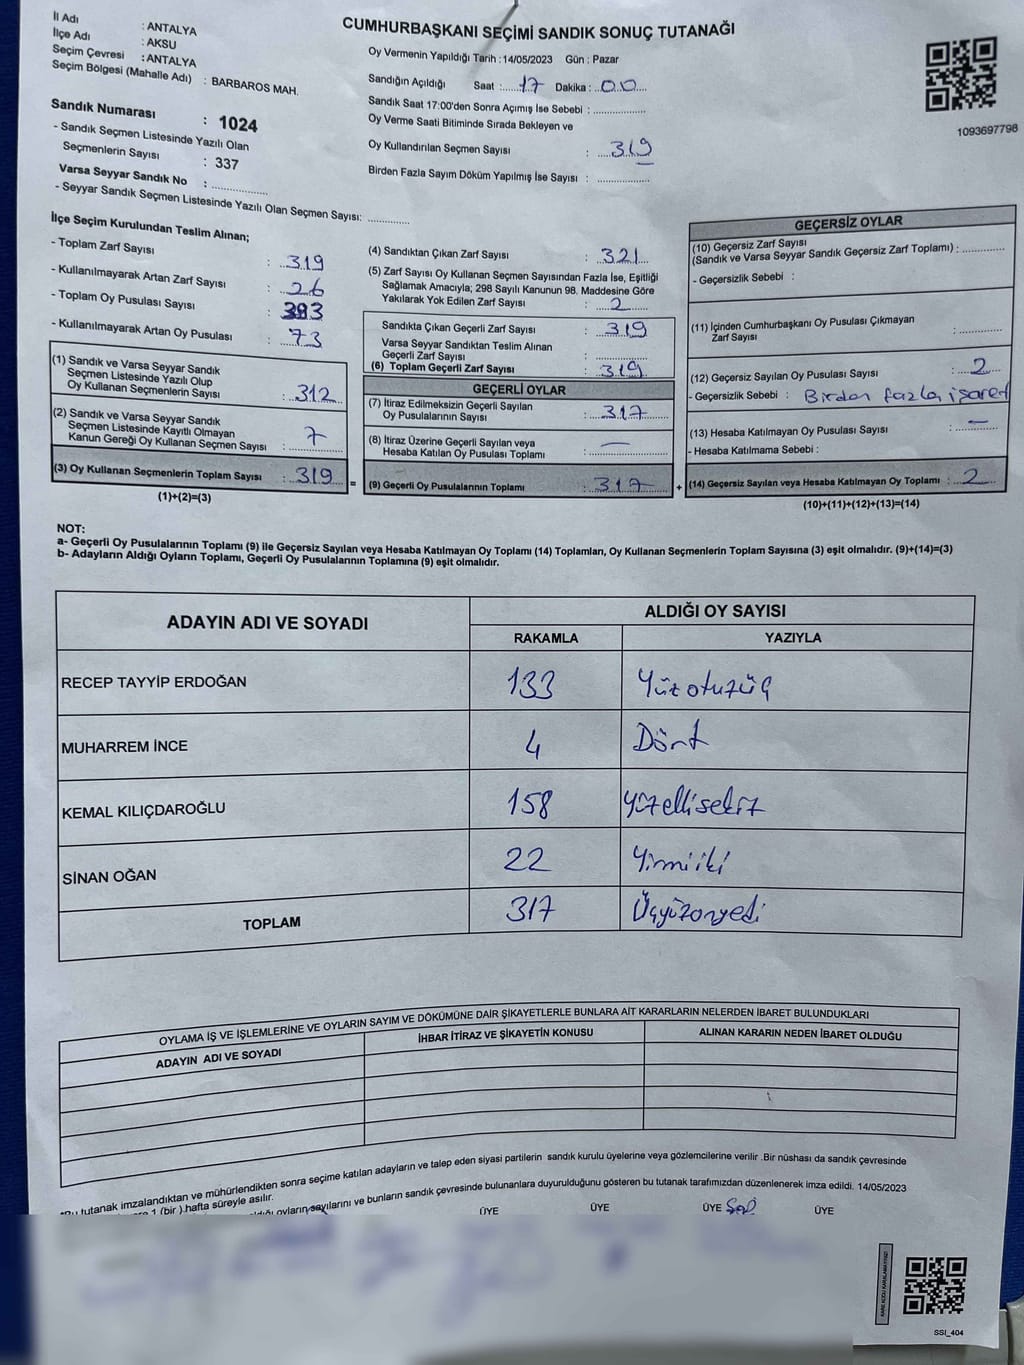 CUMHURBAŞKANI SEÇİMİ SANDIK SONUÇ TUTANAĞI
İl Adı : ANTALYA
İlçe Adı : AKSU
Seçim Çevresi : ANTALYA
Seçim Bölgesi (Mahalle Adı) : BARBAROS MAH.
Sandık Numarası : 1024
- Sandık Seçmen Listesinde Yazılı Olan
Seçmenlerin Sayısı : 337
Varsa Seyyar Sandık No : ..............
- Seyyar Sandık Seçmen Listesinde Yazılı Olan Seçmen Sayısı: ............
Oy Vermenin Yapıldığı Tarih : 14/05/2023 Gün : Pazar
Sandığın Açıldığı Saat : 17 Dakika : 00
Sandık Saat 17:00'den Sonra Açımış İse Sebebi : ................
Oy Verme Saati Bitiminde Sırada Bekleyen ve
Oy Kullandırılan Seçmen Sayısı : 319
Birden Fazla Sayım Döküm Yapılmış İse Sayısı : ................
1093697798
İlçe Seçim Kurulundan Teslim Alınan;
- Toplam Zarf Sayısı : 319
- Kullanılmayarak Artan Zarf Sayısı : 26
- Toplam Oy Pusulası Sayısı : 393
- Kullanılmayarak Artan Oy Pusulası : 73
(1) Sandık ve Varsa Seyyar Sandık
Seçmen Listesinde Yazılı Olup
Oy Kullanan Seçmenlerin Sayısı : 312
(2) Sandık ve Varsa Seyyar Sandık
Seçmen Listesinde Kayıtlı Olmayan
Kanun Gereği Oy Kullanan Seçmen Sayısı : 7
(3) Oy Kullanan Seçmenlerin Toplam Sayısı : 319 =
(1)+(2)=(3)
(4) Sandıktan Çıkan Zarf Sayısı : 321
(5) Zarf Sayısı Oy Kullanan Seçmen Sayısından Fazla İse, Eşitliği
Sağlamak Amacıyla; 298 Sayılı Kanunun 98. Maddesine Göre
Yakılarak Yok Edilen Zarf Sayısı : 2
Sandıkta Çıkan Geçerli Zarf Sayısı : 319
Varsa Seyyar Sandıktan Teslim Alınan
Geçerli Zarf Sayısı : ..............
(6) Toplam Geçerli Zarf Sayısı : 319
GEÇERLİ OYLAR
(7) İtiraz Edilmeksizin Geçerli Sayılan
Oy Pusulalarının Sayısı : 317
(8) İtiraz Üzerine Geçerli Sayılan veya
Hesaba Katılan Oy Pusulası Toplamı : —
(9) Geçerli Oy Pusulalarının Toplamı : 317 +
GEÇERSİZ OYLAR
(10) Geçersiz Zarf Sayısı
(Sandık ve Varsa Seyyar Sandık Geçersiz Zarf Toplamı) : ............
- Geçersizlik Sebebi :
(11) İçinden Cumhurbaşkanı Oy Pusulası Çıkmayan
Zarf Sayısı : ............
(12) Geçersiz Sayılan Oy Pusulası Sayısı : 2
- Geçersizlik Sebebi : Birden fazla işaret
(13) Hesaba Katılmayan Oy Pusulası Sayısı : —
- Hesaba Katılmama Sebebi :
(14) Geçersiz Sayılan veya Hesaba Katılmayan Oy Toplamı : 2
(10)+(11)+(12)+(13)=(14)
NOT:
a- Geçerli Oy Pusulalarının Toplamı (9) ile Geçersiz Sayılan veya Hesaba Katılmayan Oy Toplamı (14) Toplamları, Oy Kullanan Seçmenlerin Toplam Sayısına (3) eşit olmalıdır. (9)+(14)=(3)
b- Adayların Aldığı Oyların Toplamı, Geçerli Oy Pusulalarının Toplamına (9) eşit olmalıdır.
ADAYIN ADI VE SOYADI ALDIĞI OY SAYISI
RAKAMLA YAZIYLA
RECEP TAYYİP ERDOĞAN 133 Yüzotuzüç
MUHARREM İNCE 4 Dört
KEMAL KILIÇDAROĞLU 158 yüzellisekiz
SİNAN OĞAN 22 Yirmiiki
TOPLAM 317 Üçyüzonyedi
OYLAMA İŞ VE İŞLEMLERİNE VE OYLARIN SAYIM VE DÖKÜMÜNE DAİR ŞİKAYETLERLE BUNLARA AİT KARARLARIN NELERDEN İBARET BULUNDUKLARI
ADAYIN ADI VE SOYADI İHBAR İTİRAZ VE ŞİKAYETİN KONUSU ALINAN KARARIN NEDEN İBARET OLDUĞU
tutanak imzalandıktan ve mühürlendikten sonra seçime katılan adayların ve talep eden siyasi partilerin sandık kurulu üyelerine veya gözlemcilerine verilir .Bir nüshası da sandık çevresinde
1 (bir ).hafta süreyle asılır.
oyların sayılarını ve bunların sandık çevresinde bulunanlara duyurulduğunu gösteren bu tutanak tarafımızdan düzenlenerek imza edildi. 14/05/2023
ÜYE ÜYE ÜYE ÜYE
SSI_404